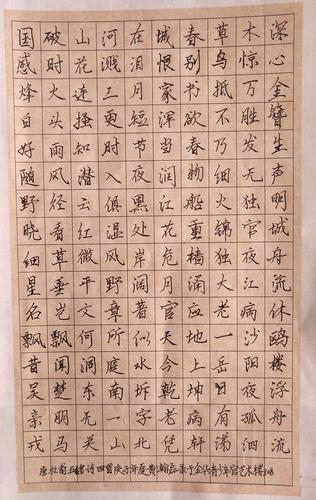 国破山河在城春草木深
感时花溅泪恨别鸟惊心
烽火连三月家书抵万金
白头搔更短浑欲不胜簪
好雨知时节当春乃发生
随风潜入夜润物细无声
野径云俱黑江船火独明
晓看红湿处花重锦官城
细草微风岸危樯独夜舟
星垂平野阔月涌大江流
名岂文章著官应老病休
飘飘何所似天地一沙鸥
昔闻洞庭水今上岳阳楼
吴楚东南坼乾坤日夜浮
亲朋无一字老病有孤舟
戎马关山北凭轩涕泗流
唐杜甫五律诗四首庚子年夏黄录于金华青少年宫艺术楼